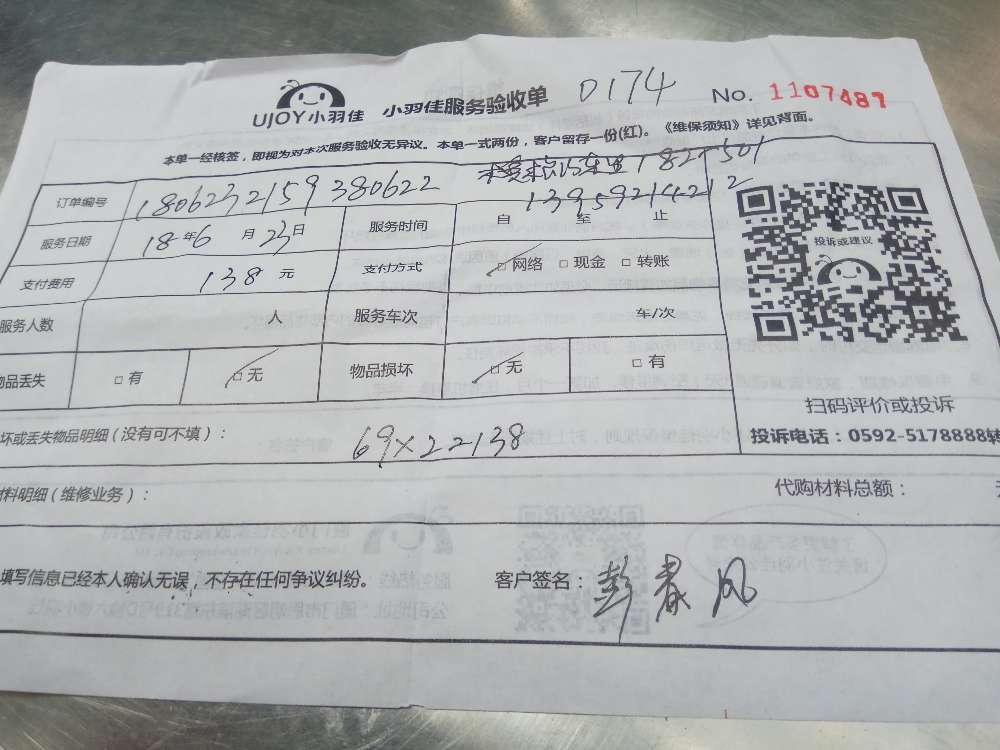 UJOY小羽佳 小羽佳服务验收单 0174 No. 1107487
本单一经核签，即视为对本次服务验收无异议。本单一式两份，客户留存一份(红)。《维保须知》详见背面。
182 501
订单编号 1806232159380622 13959214212
服务日期 18年6月23日 服务时间 自 至 止
支付费用 138 元 支付方式 □网络 □现金 □转账
服务人数 人 服务车次 车/次
物品丢失 □有 □无 物品损坏 □无 □有
投诉或建议
扫码评价或投诉
投诉电话：0592-5178888转
坏或丢失物品明细（没有可不填）： 69×22138
材料明细（维修业务）： 代购材料总额：
填写信息已经本人确认无误，不存在任何争议纠纷。 客户签名：彭春风